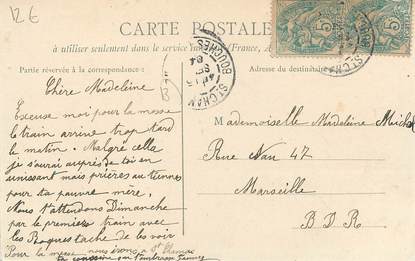 126
CARTE POSTALE
à utiliser seulement dans le service
Partie réservée à la correspondance :
Adresse du destinataire
5
5
ST CHAMAS
BOUCHES
04
Chère Madeleine
Excuse moi pour la messe
le train arrive trop tard
le matin. Malgré cella
je s'aurai auprès de toi en
unissant mes prières au tiennes
pour ta pauvre mère,
Nous t'attendons Dimanche
par le premiers train avec
les Roques tache de les voir
Pour la messe nous irons a St Chamas
Mademoiselle Madeleine Michel
Rue Nau 47
Marseille
B. D. R.